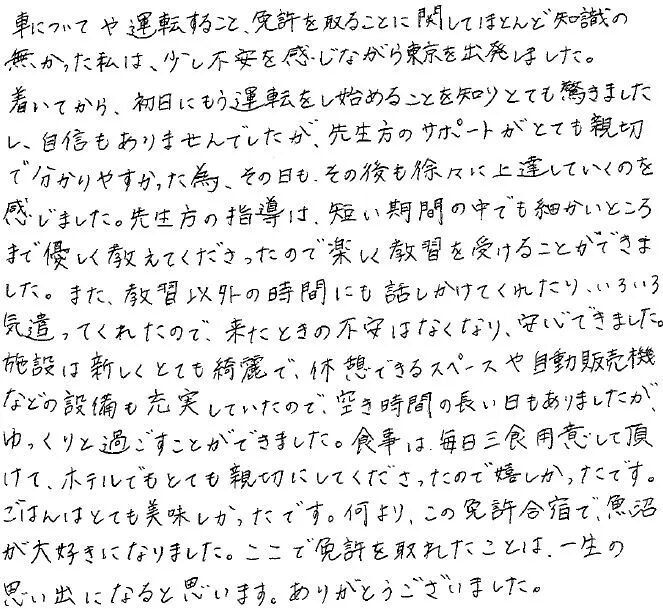 車についてや運転すること、免許を取ることに関してほとんど知識の
無かった私は、少し不安を感じながら東京を出発しました。
着いてから、初日にもう運転をし始めることを知りとても驚きました
し、自信もありませんでしたが、先生方のサポートがとても親切
で分かりやすかった為、その日も、その後も徐々に上達していくのを
感じました。先生方の指導は、短い期間の中でも細かいところ
まで優しく教えてくださったので楽しく教習を受けることができま
した。また、教習以外の時間にも話しかけてくれたり、いろいろ
気遣ってくれたので、来たときの不安はなくなり、安心できました。
施設は新しくとても綺麗で、休憩できるスペースや自動販売機
などの設備も充実していたので、空き時間の長い日もありましたが、
ゆっくりと過ごすことができました。食事は、毎日三食用意して頂
けて、ホテルでもとても親切にしてくださったので嬉しかったです。
ごはんはとても美味しかったです。何より、この免許合宿で、魚沼
が大好きになりました。ここで免許を取れたことは、一生の
思い出になると思います。ありがとうございました。